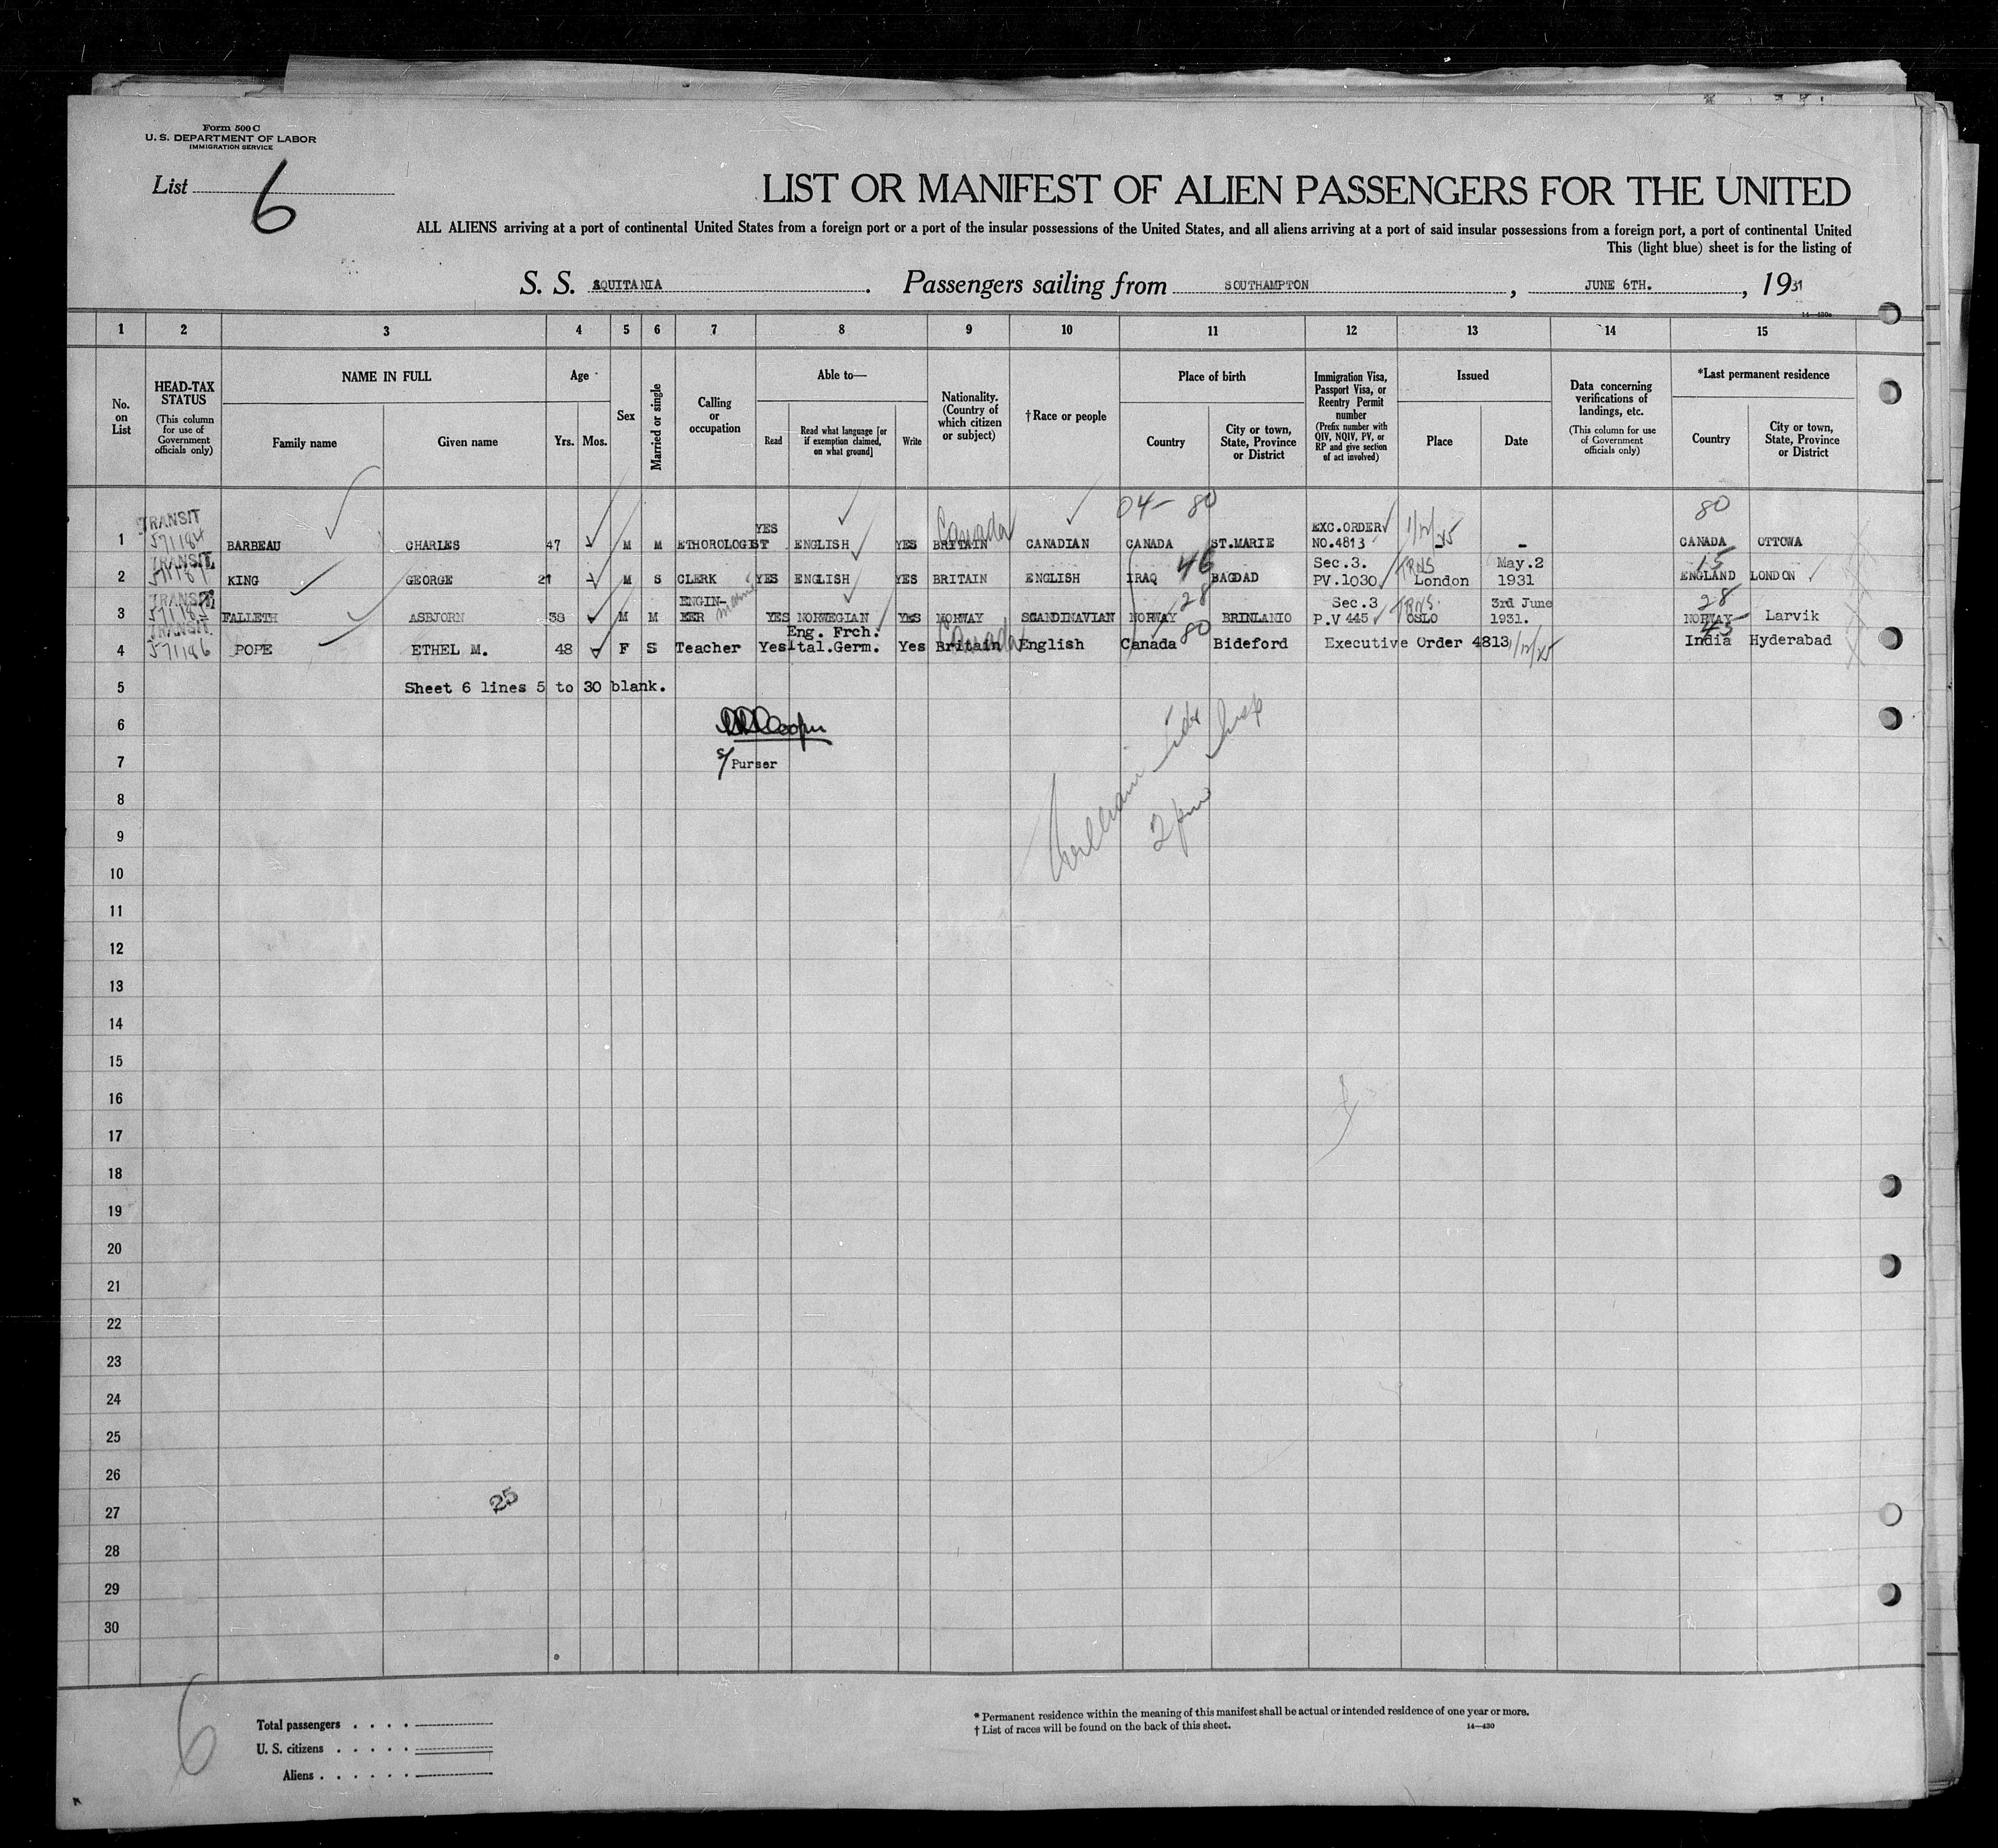 Form 500 C
U. S. DEPARTMENT OF LABOR
IMMIGRATION SERVICE
List 6
LIST OR MANIFEST OF ALIEN PASSENGERS FOR THE UNITED
ALL ALIENS arriving at a port of continental United States from a foreign port or a port of the insular possessions of the United States, and all aliens arriving at a port of said insular possessions from a foreign port, a port of continental United
This (light blue) sheet is for the listing of
S. S. AQUITANIA. Passengers sailing from SOUTHAMPTON, JUNE 6TH., 1931
14—430a
1 2 3 4 5 6 7 8 9 10 11 12 13 14 15
No. on List
HEAD-TAX STATUS (This column for use of Government officials only)
NAME IN FULL
Family name
Given name
Age
Yrs. Mos.
Sex
Married or single
Calling or occupation
Able to—
Read
Read what language [or if exemption claimed, on what ground]
Write
Nationality. (Country of which citizen or subject)
†Race or people
Place of birth
Country
City or town, State, Province or District
Immigration Visa, Passport Visa, or Reentry Permit number (Prefix number with QIV, NQIV, PV, or RP and give section of act involved)
Issued
Place
Date
Data concerning verifications of landings, etc. (This column for use of Government officials only)
*Last permanent residence
Country
City or town, State, Province or District
04- 80 80
1 TRANSIT 571184 BARBEAU CHARLES 47 M M ETHOROLOGIST YES ENGLISH YES BRITAIN Canada CANADIAN CANADA ST.MARIE EXC.ORDER NO.4813 - - CANADA OTTOWA
2 TRANSIT KING GEORGE 21 M S CLERK YES ENGLISH YES BRITAIN ENGLISH IRAQ 46 BAGDAD Sec.3. PV.1030 TRNS London May.2 1931 15 ENGLAND LONDON
3 TRANSIT 571185 FALLETH ASBJORN 38 M M ENGIN-EER YES NORWEGIAN YES NORWAY SCANDINAVIAN NORWAY 28 BRINLANIO Sec.3 P.V 445 TRNS. OSLO 3rd June 1931. 28 NORWAY Larvik
4 TRANSIT 571186 POPE ETHEL M. 48 F S Teacher Yes Eng. Frch. Ital.Germ. Yes Britain Canada English Canada 80 Bideford Executive Order 4813 1/12/25 45 India Hyderabad
5 Sheet 6 lines 5 to 30 blank.
6
7 s/ Purser
2 pm
8
9
10
11
12
13
14
15
16
17
18
19
20
21
22
23
24
25
26
27 25
28
29
30
6
Total passengers . . . .
U. S. citizens . . . . .
Aliens . . . . . .
* Permanent residence within the meaning of this manifest shall be actual or intended residence of one year or more.
† List of races will be found on the back of this sheet.
14—430